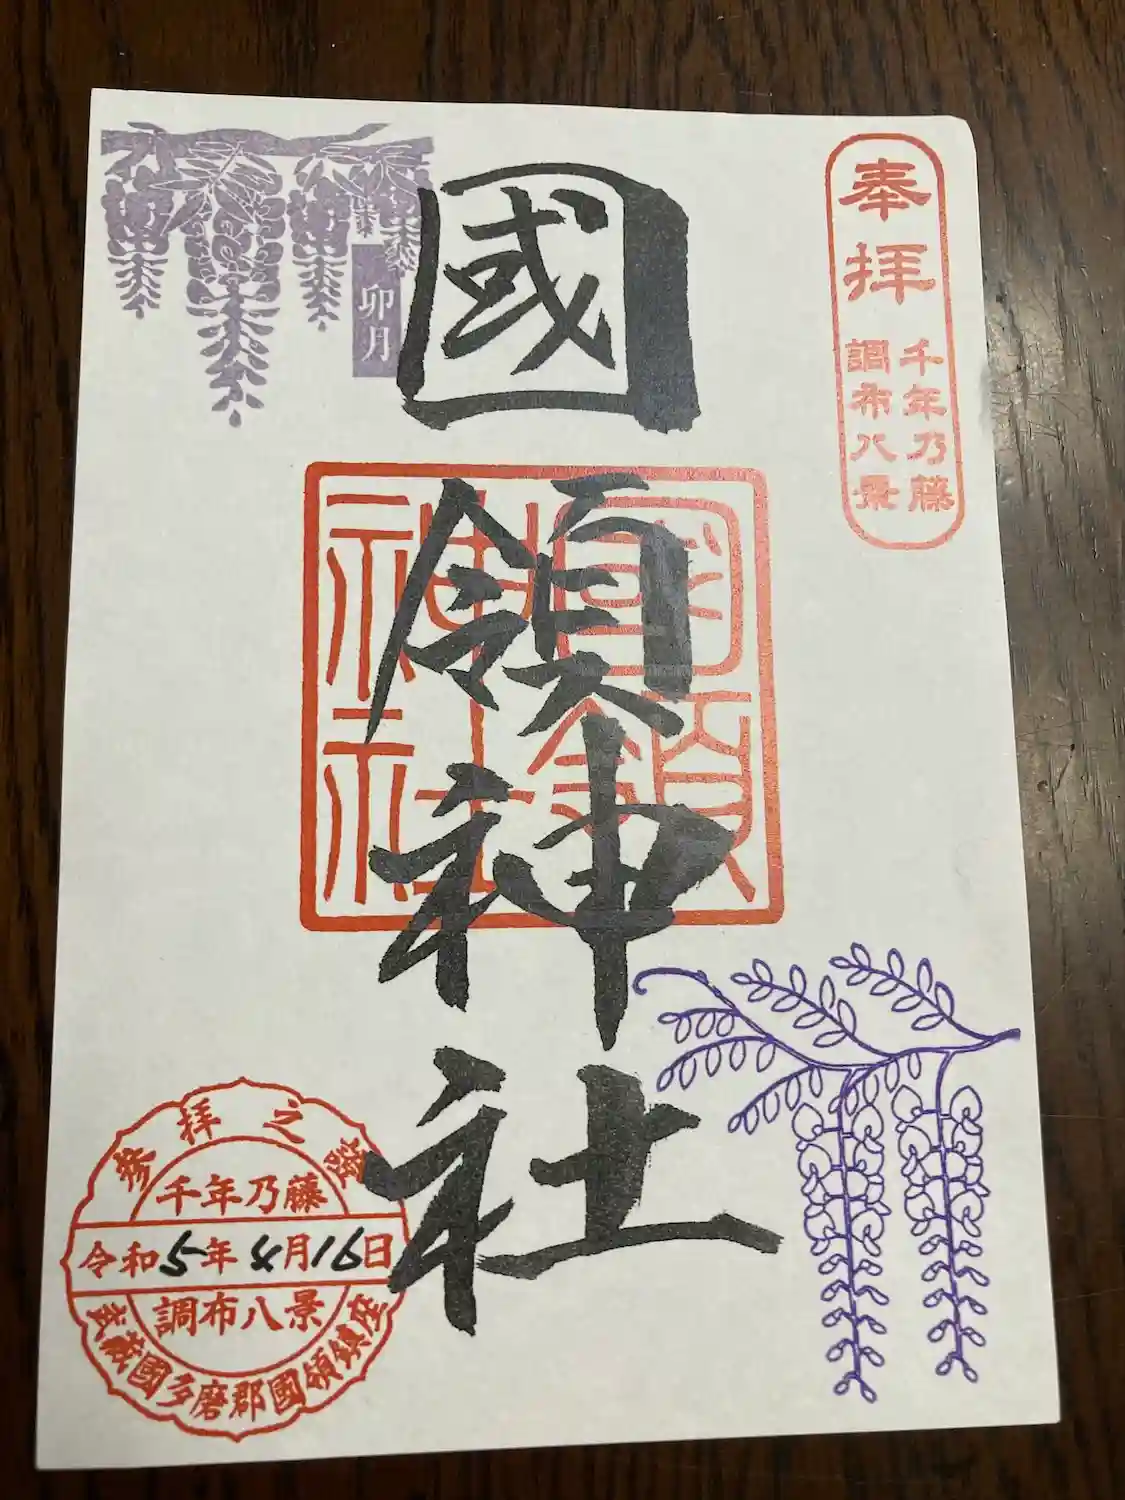 奉拝
千年乃藤
調布八景
國領神社
國領
神社
卯月
參拝之證
千年乃藤
令和5年4月16日
調布八景
武蔵國多磨郡國領鎮座